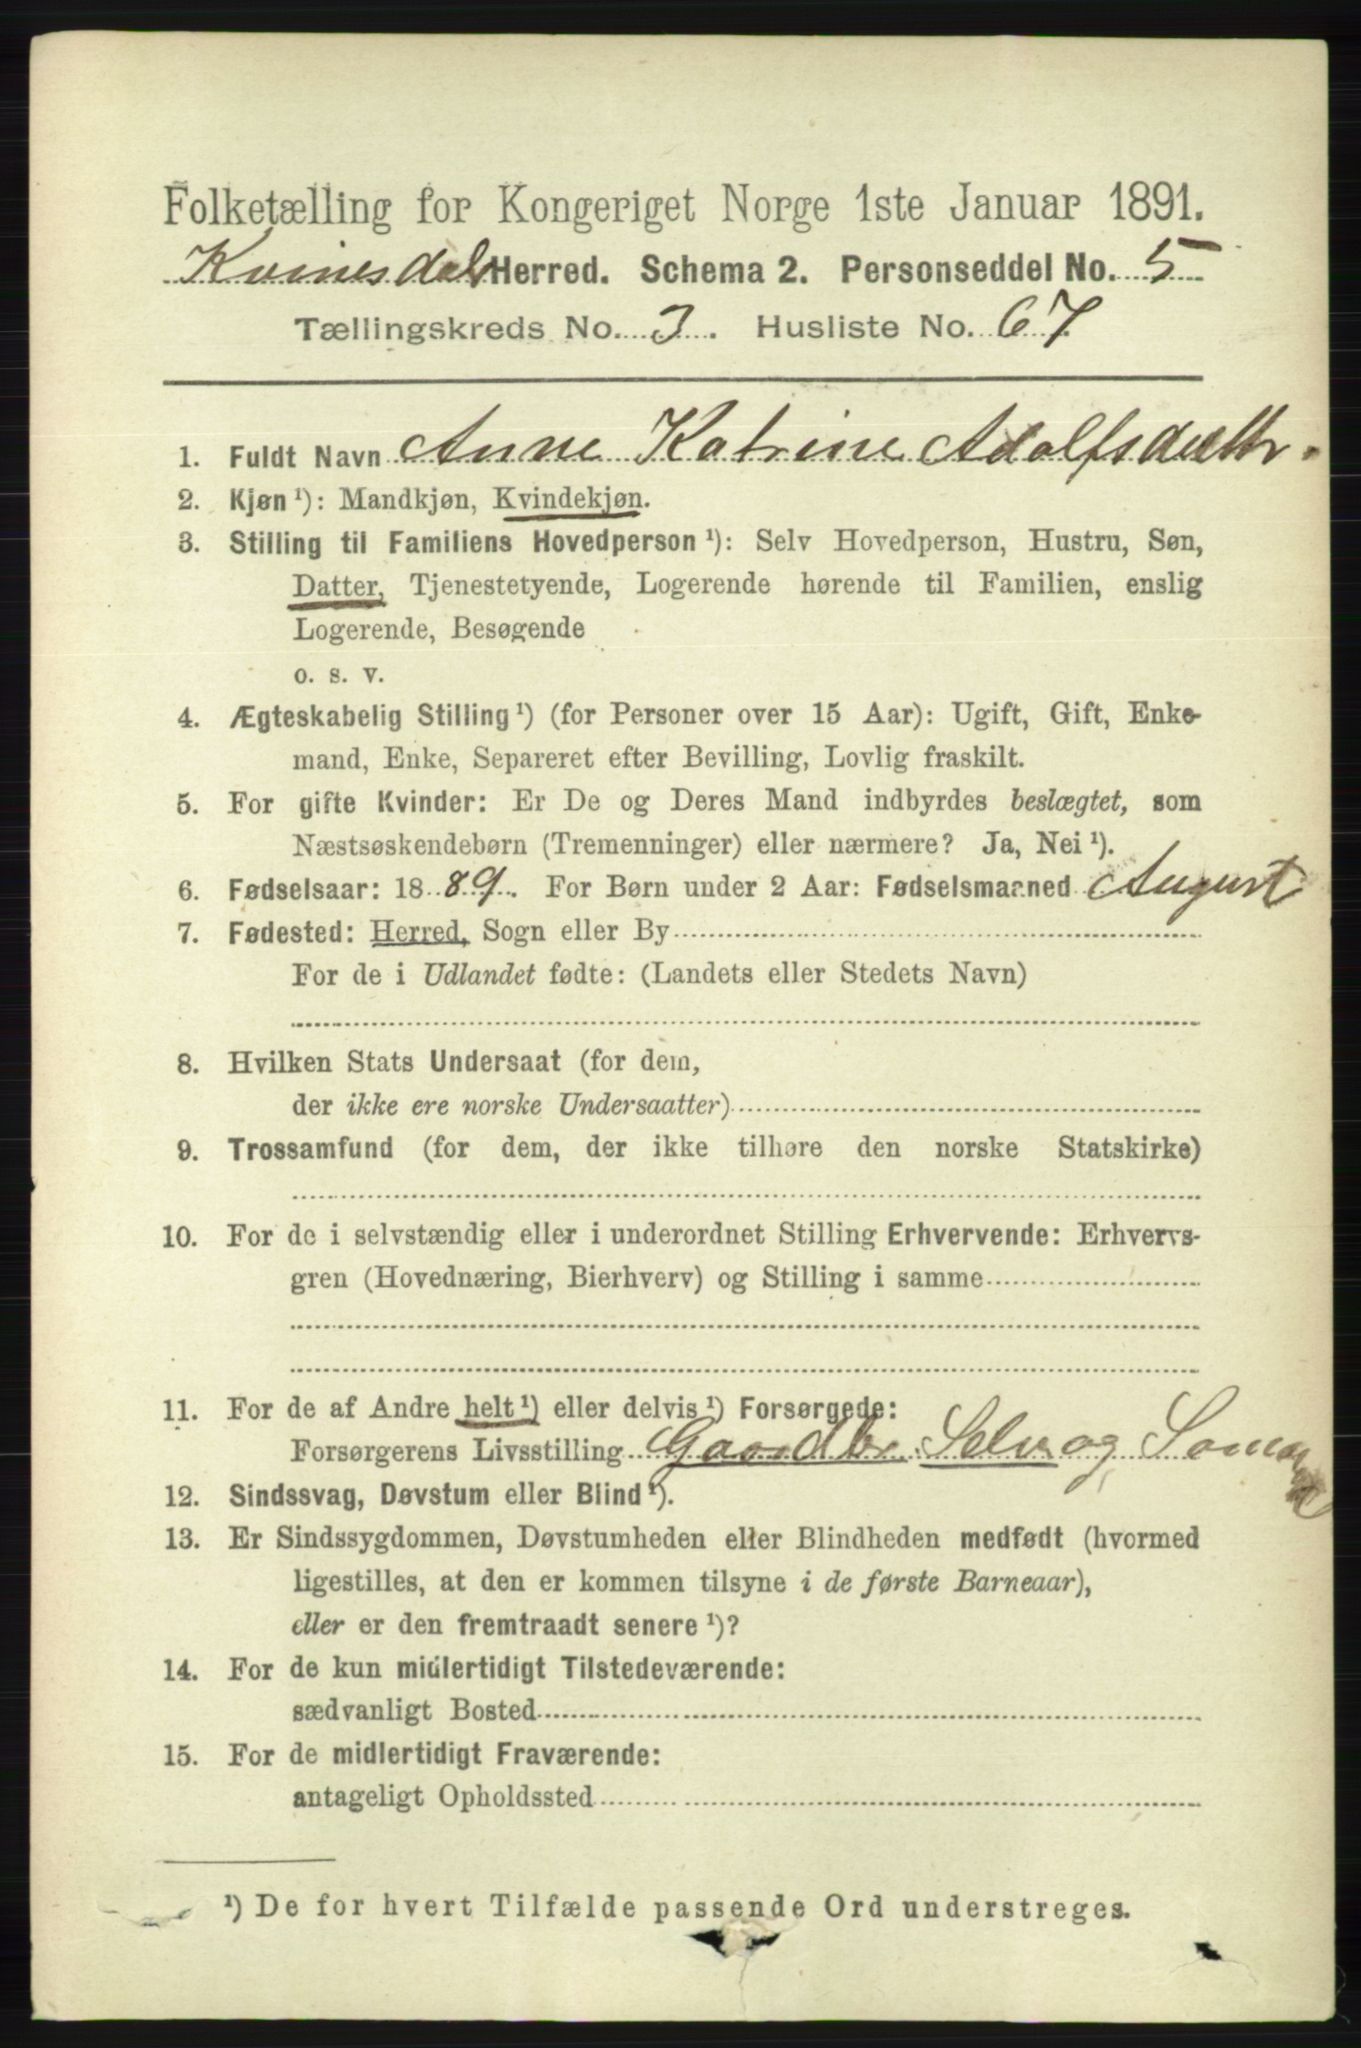 Folketælling for Kongeriget Norge 1ste Januar 1891.
Kvinesdal Herred. Schema 2. Personseddel No. 5
Tællingskreds No. 3. Husliste No. 67
1. Fuldt Navn Anne Katrine Adolfsdattr.
2. Kjøn ¹): Mandkjøn, Kvindekjøn.
3. Stilling til Familiens Hovedperson ¹): Selv Hovedperson, Hustru, Søn,
Datter, Tjenestetyende, Logerende hørende til Familien, enslig
Logerende, Besøgende
o. s. v.
4. Ægteskabelig Stilling ¹) (for Personer over 15 Aar): Ugift, Gift, Enke-
mand, Enke, Separeret efter Bevilling, Lovlig fraskilt.
5. For gifte Kvinder: Er De og Deres Mand indbyrdes beslægtet, som
Næstsøskendebørn (Tremenninger) eller nærmere? Ja, Nei ¹).
6. Fødselsaar: 1889. For Børn under 2 Aar: Fødselsmaaned August
7. Fødested: Herred, Sogn eller By
For de i Udlandet fødte: (Landets eller Stedets Navn)
8. Hvilken Stats Undersaat (for dem,
der ikke ere norske Undersaatter)
9. Trossamfund (for dem, der ikke tilhøre den norske Statskirke)
10. For de i selvstændig eller i underordnet Stilling Erhvervende: Erhvervs-
gren (Hovednæring, Bierhverv) og Stilling i samme
11. For de af Andre helt ¹) eller delvis ¹) Forsørgede:
Forsørgerens Livsstilling Gaardbr. Selv og
12. Sindssvag, Døvstum eller Blind ¹).
13. Er Sindssygdommen, Døvstumheden eller Blindheden medfødt (hvormed
ligestilles, at den er kommen tilsyne i de første Barneaar),
eller er den fremtraadt senere ¹)?
14. For de kun midlertidigt Tilstedeværende:
sædvanligt Bosted
15. For de midlertidigt Fraværende:
antageligt Opholdssted
¹) De for hvert Tilfælde passende Ord understreges.